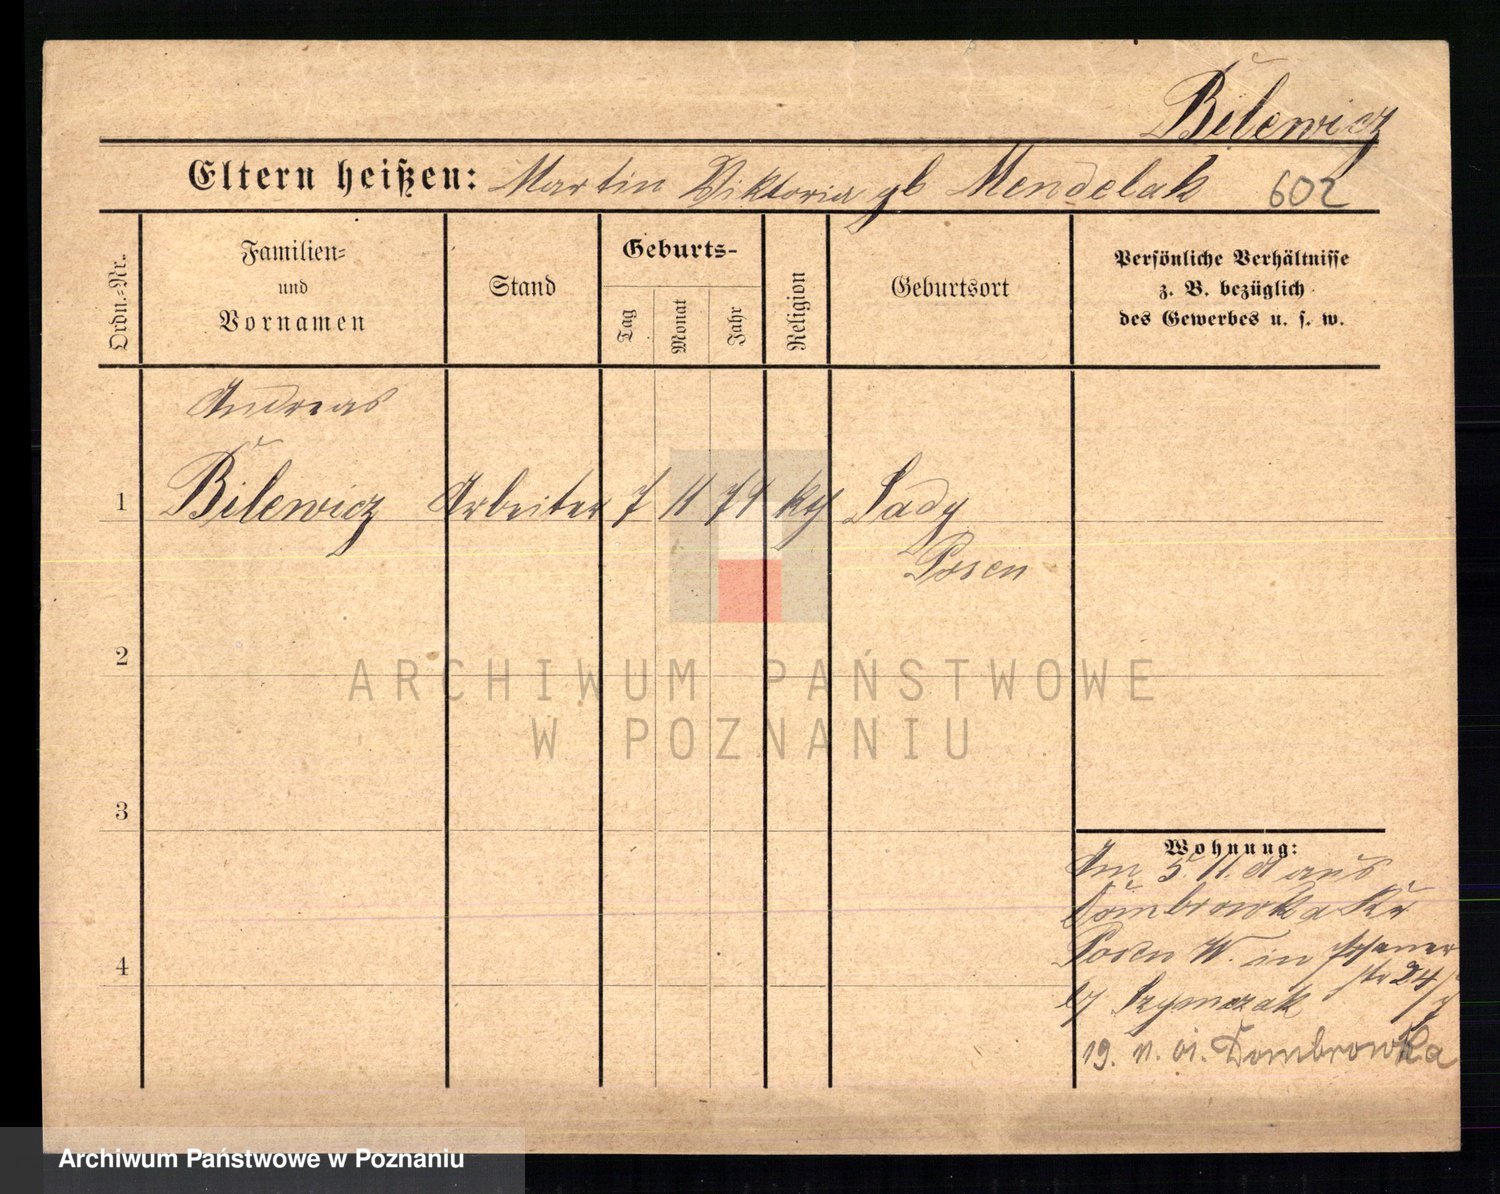 Bilewicz
Eltern heißen: Martin Viktoria gb Mendelak 602
Ordn.-Nr.
Familien-
und
Vornamen
Stand
Geburts-
Tag
Monat
Jahr
Religion
Geburtsort
Persönliche Verhältnisse
z. B. bezüglich
des Gewerbes u. s. w.
Andreas
1 Bilewicz Arbeiter 7 11 79 kth Sady
Posen
2
ARCHIWUM PAŃSTWOWE
W POZNANIU
3
Wohnung:
Am 5. 11. 01 aus
Dombrowka Kr
Posen W. in
str 24/
b/ Szymczak
4
19. 11. 01. Dombrowka
Archiwum Państwowe w Poznaniu